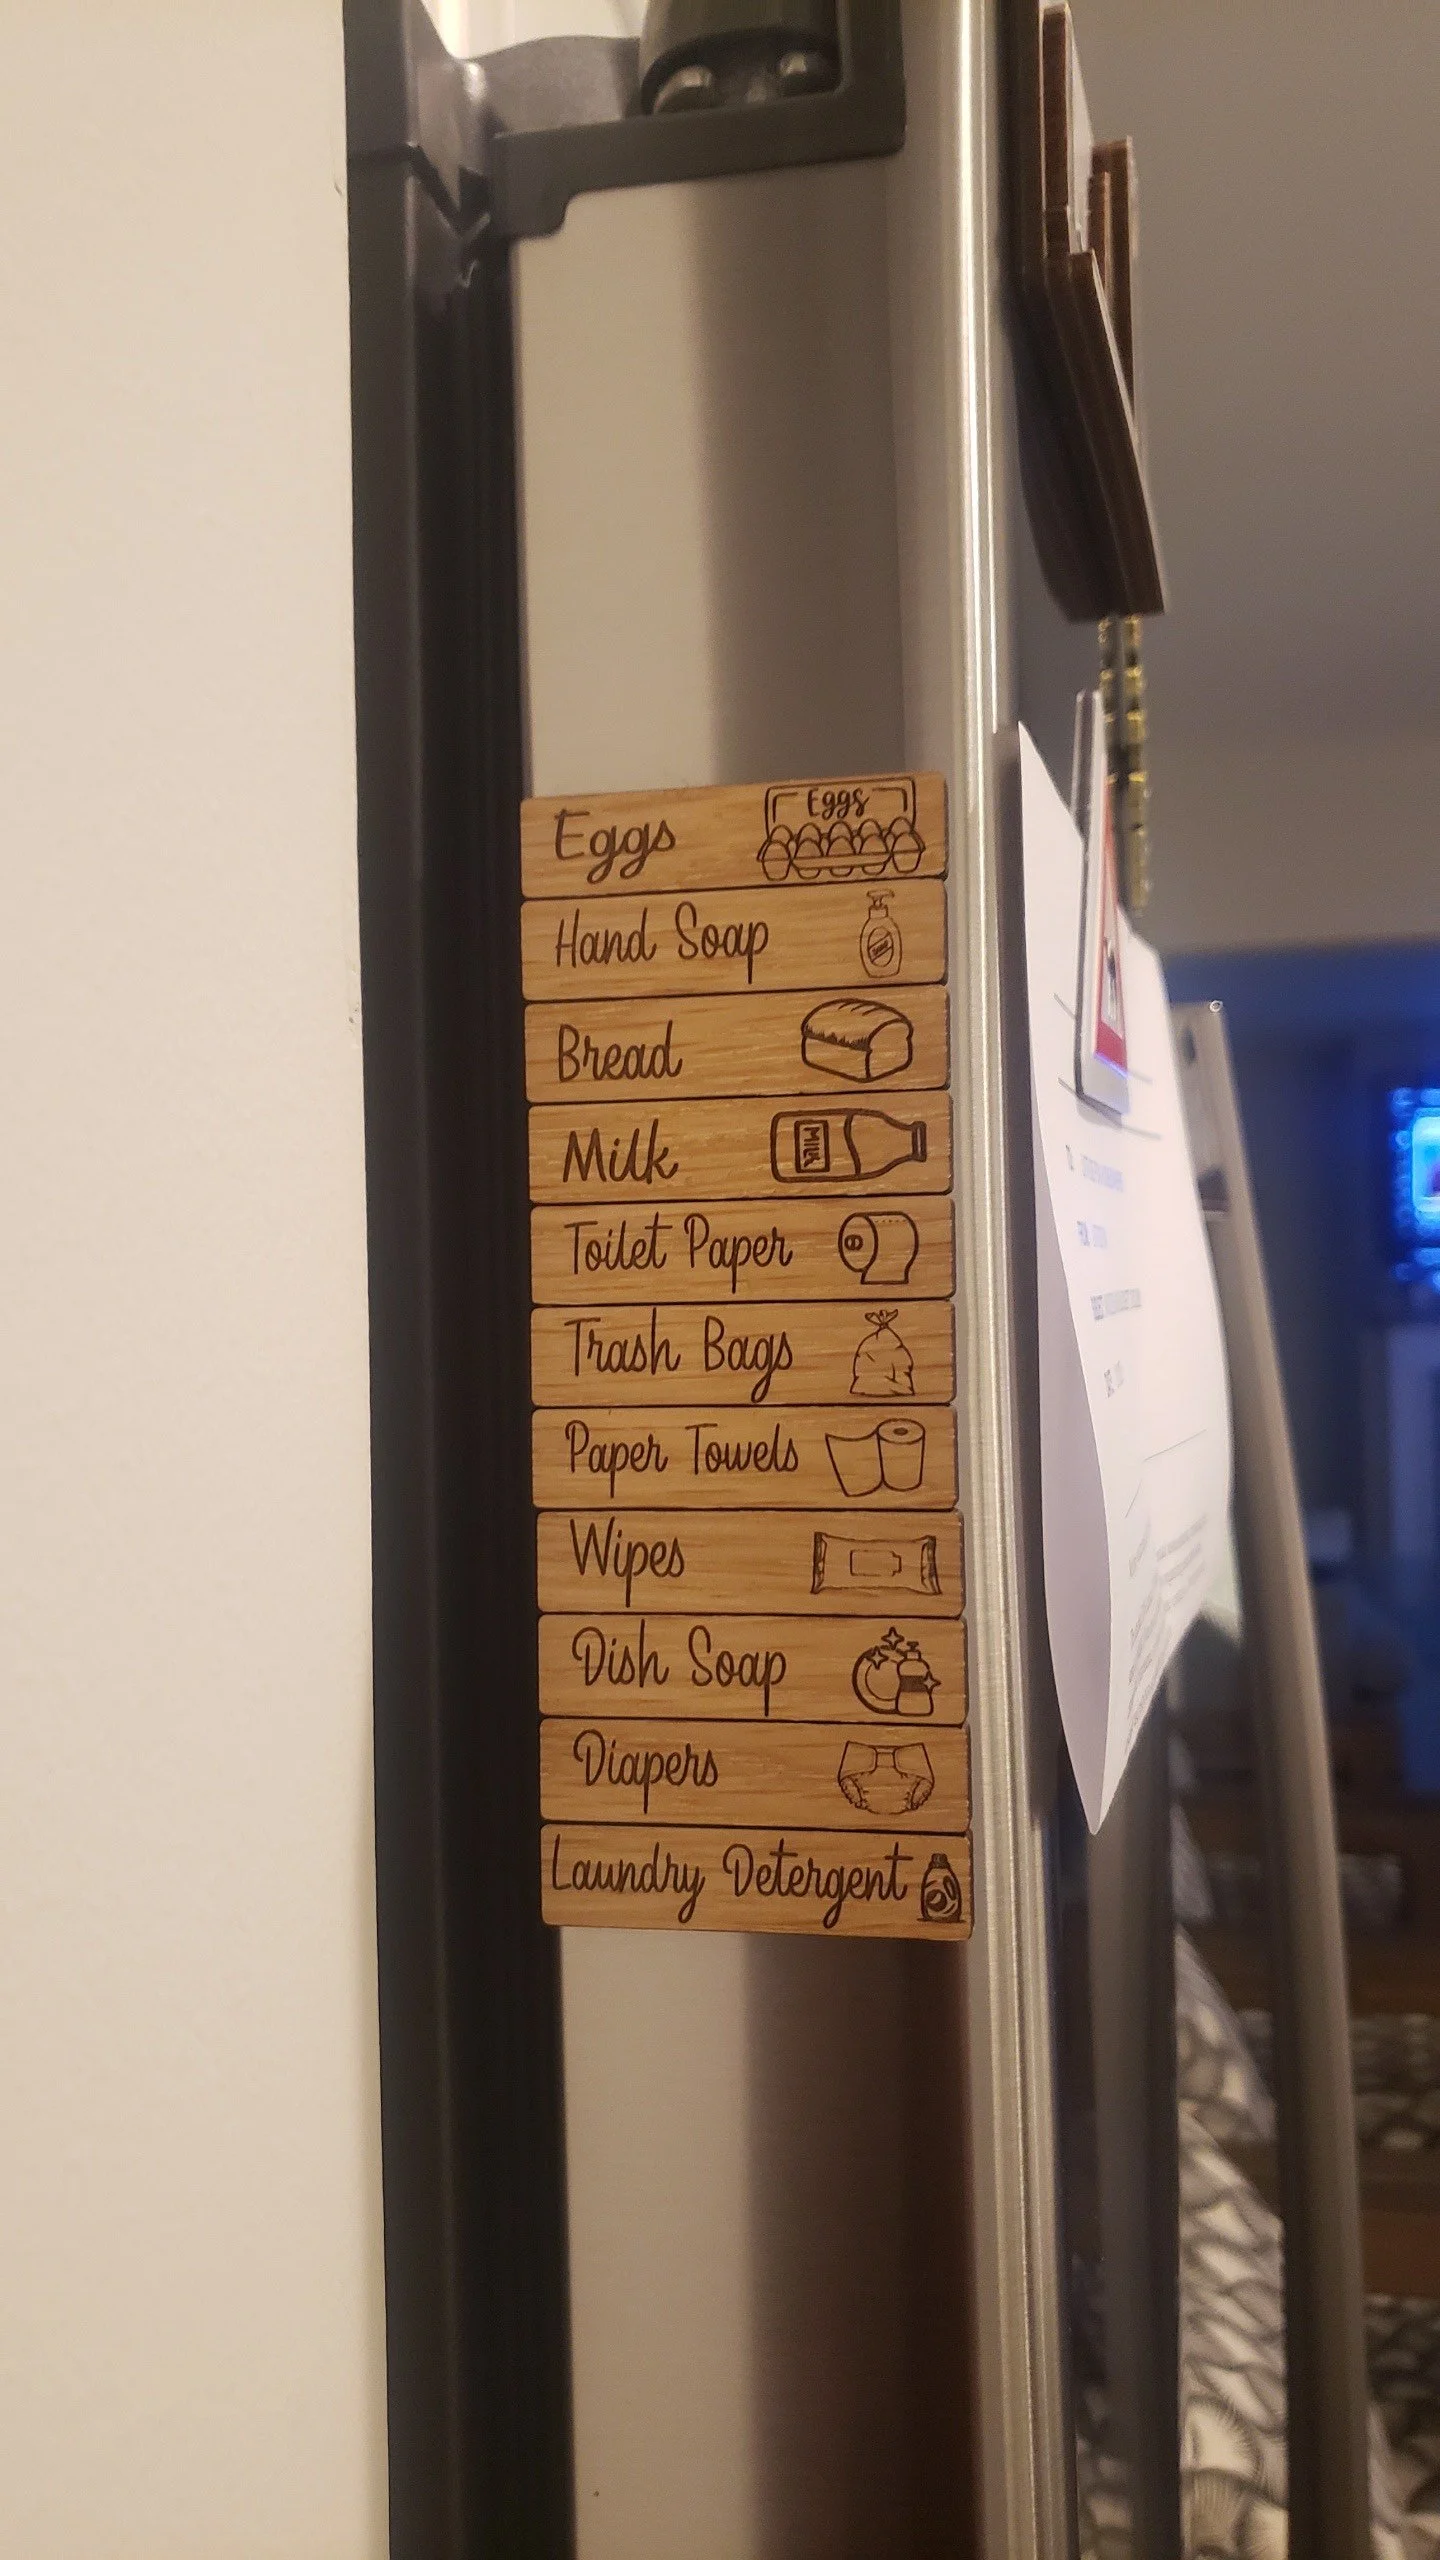 Eggs Eggs
Hand Soap
Bread
Milk MILK
Toilet Paper
Trash Bags
Paper Towels
Wipes
Dish Soap
Diapers
Laundry Detergent